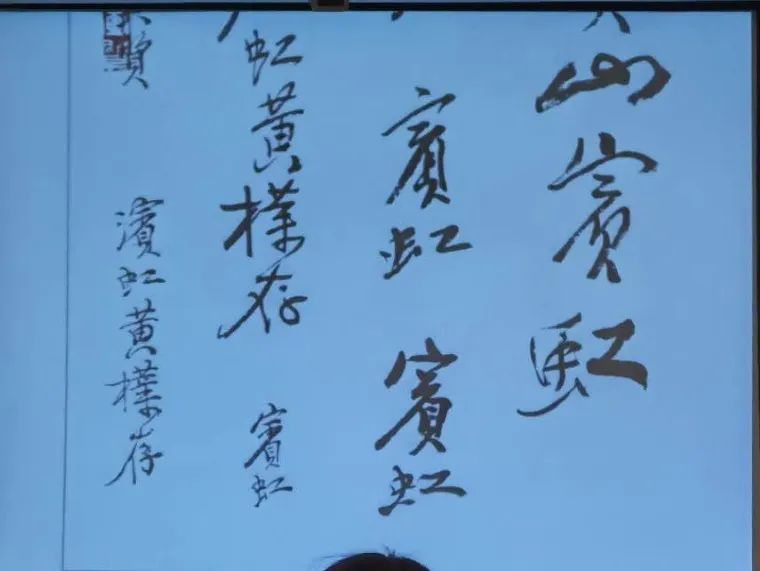 山賓虹
賓虹
賓虹
虹黃樸存
賓虹
濱虹黃樸存